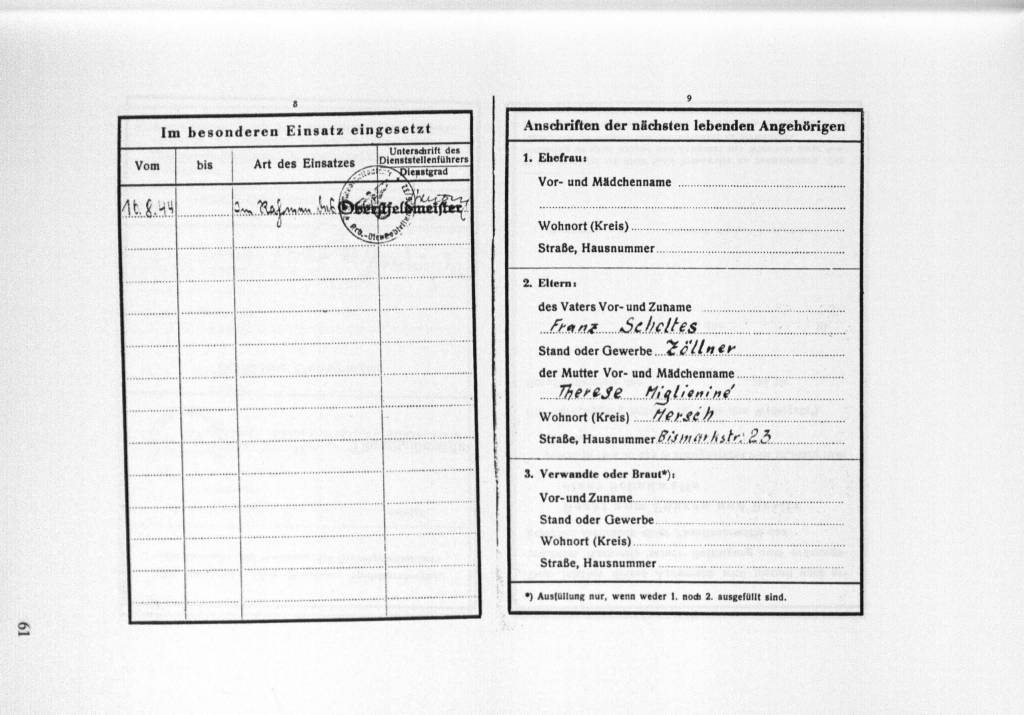 8
Im besonderen Einsatz eingesetzt
Vom
bis
Art des Einsatzes
Unterschrift des Dienststellenführers
Dienstgrad
16.8.44
Im Rahmen des
Oberstfeldmeister
9
Anschriften der nächsten lebenden Angehörigen
1. Ehefrau:
Vor- und Mädchenname
Wohnort (Kreis)
Straße, Hausnummer
2. Eltern:
des Vaters Vor- und Zuname
Franz Scholtes
Stand oder Gewerbe Zöllner
der Mutter Vor- und Mädchenname
Therese Miglieniné
Wohnort (Kreis) Mersch
Straße, Hausnummer Bismarkstr: 23
3. Verwandte oder Braut*):
Vor- und Zuname
Stand oder Gewerbe
Wohnort (Kreis)
Straße, Hausnummer
*) Ausfüllung nur, wenn weder 1. noch 2. ausgefüllt sind.
61